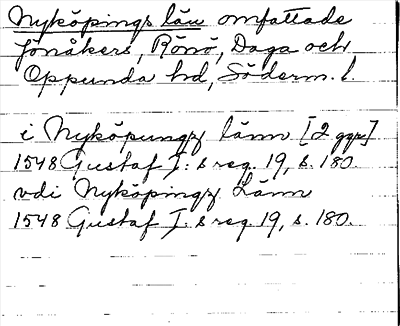 Nyköpings län omfattade
Jönåkers, Rönö, Daga och
Oppunda hd, Söderm. l.
i Nyköpungz länn [2 ggr]
1548 Gustaf I:s reg. 19, s. 180.
vdi Nyköpingz Länn
1548 Gustaf I:s reg. 19, s. 180.